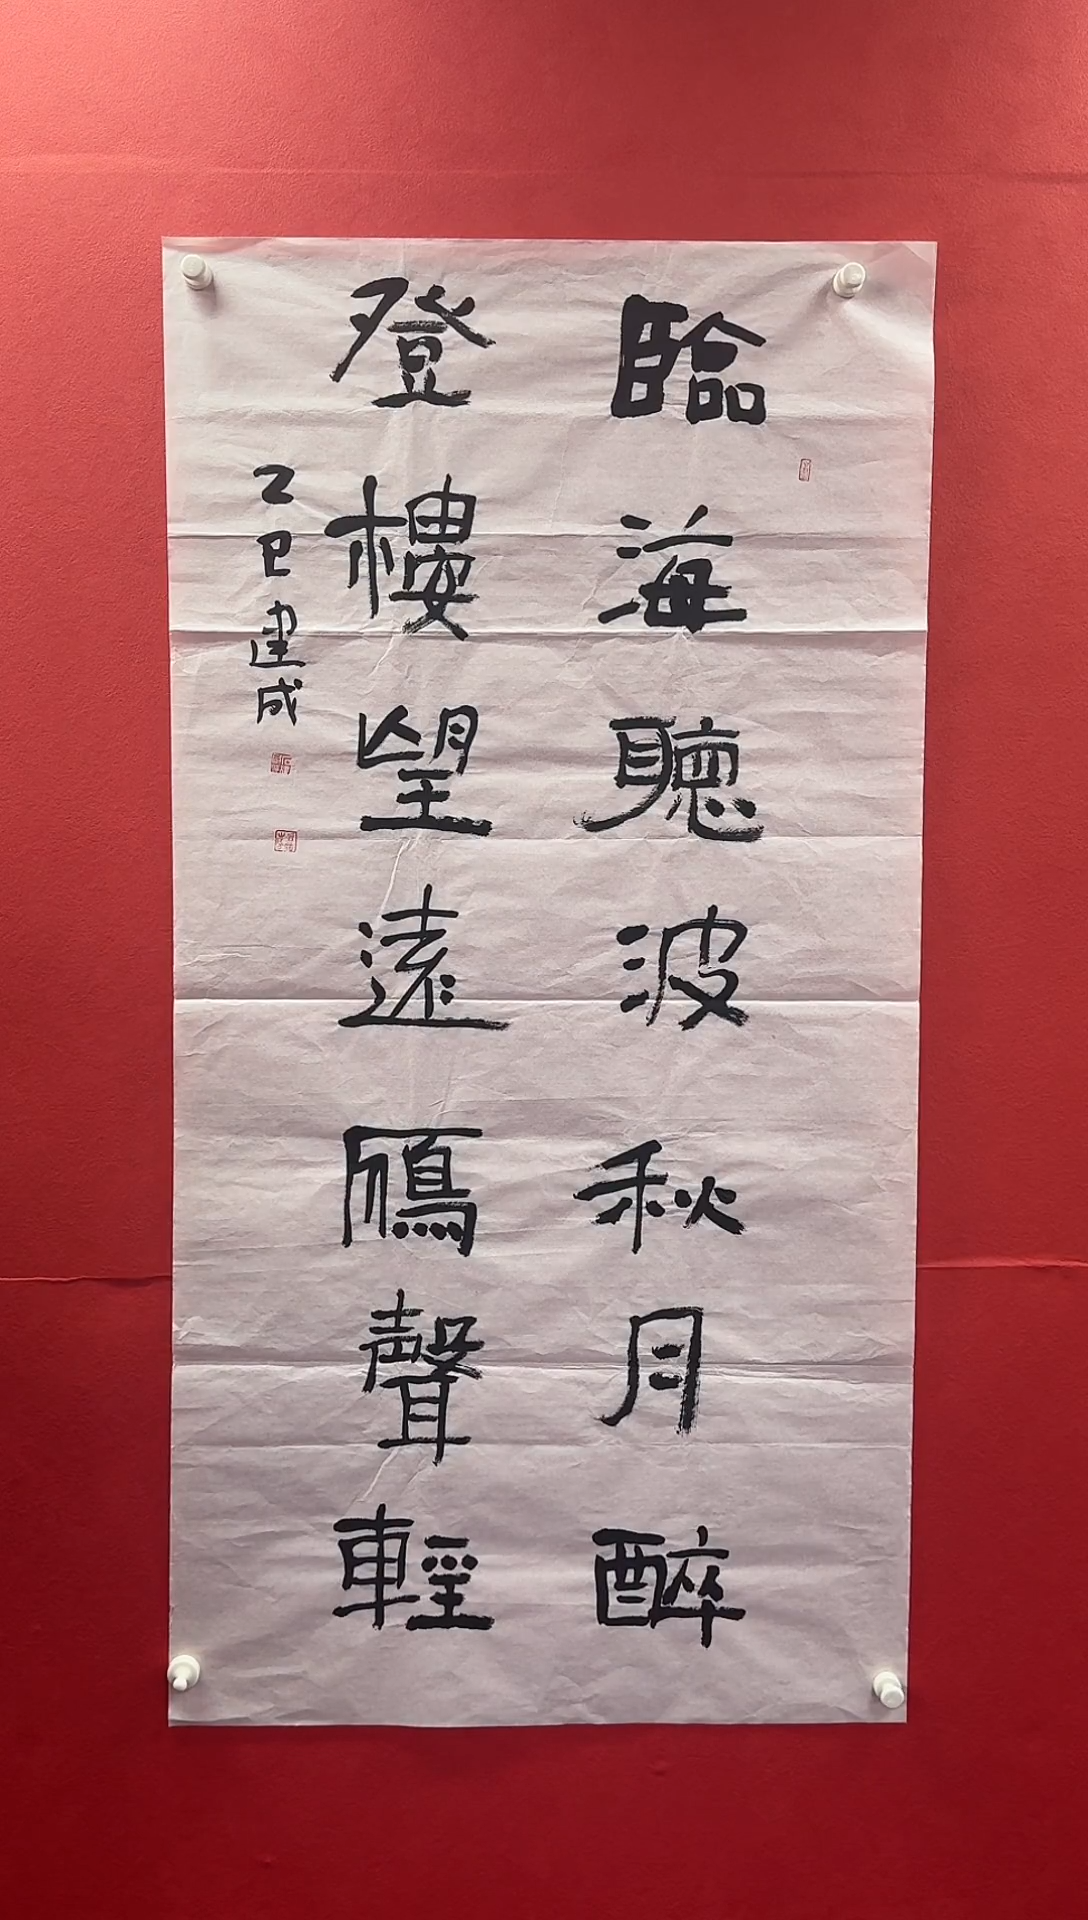 臨海聽波秋月醉
登樓望遠鴈聲輕
乙巳建成